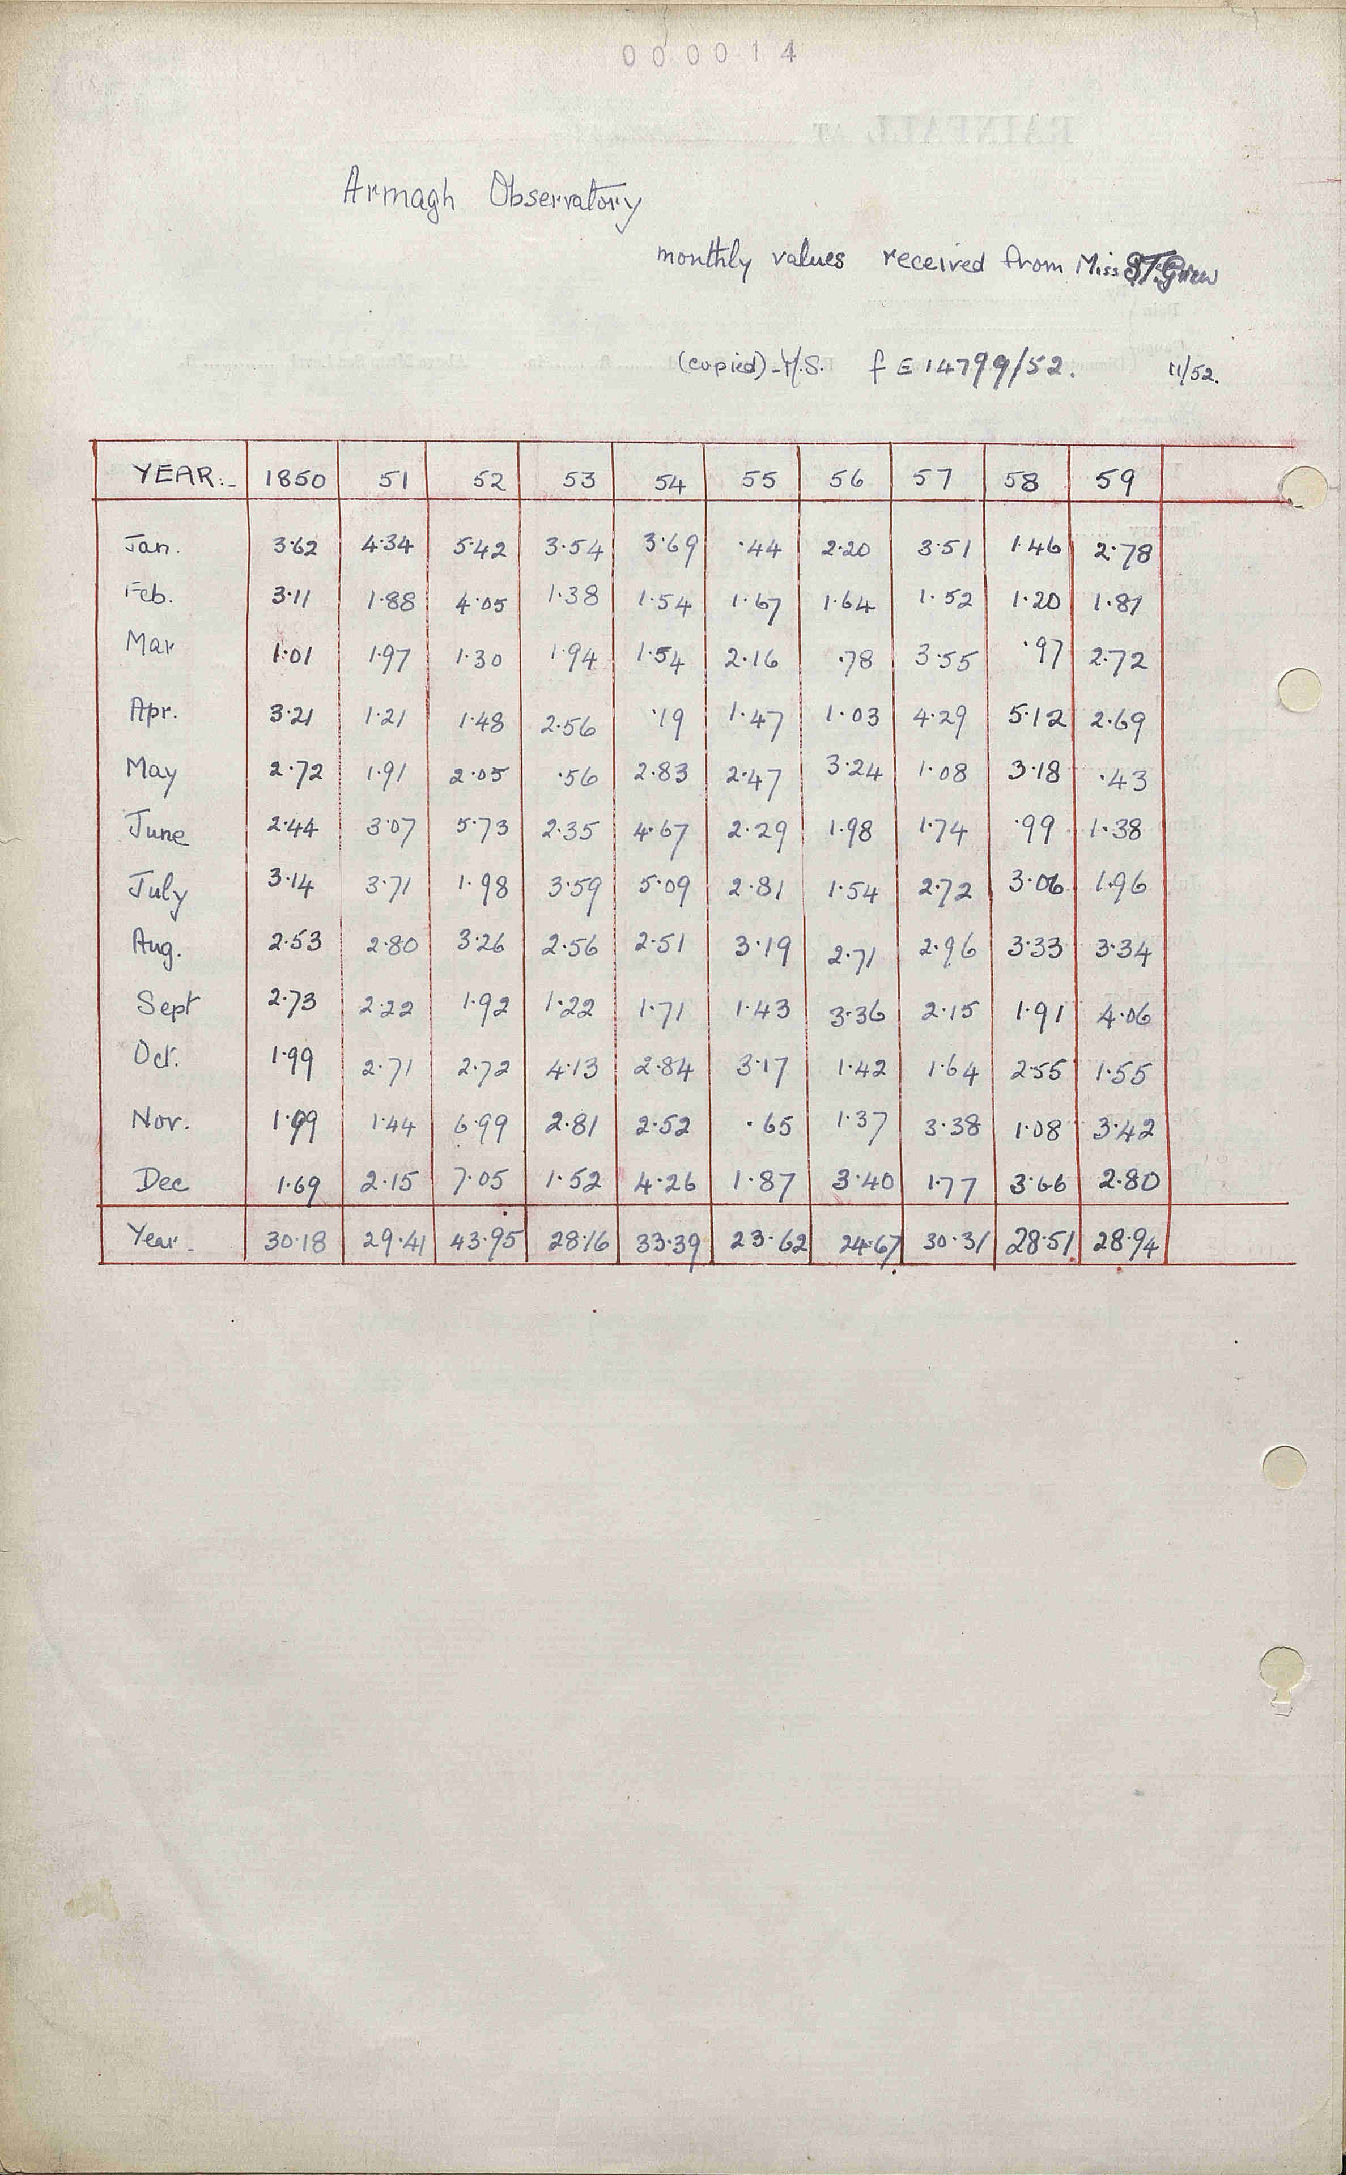 000014
Armagh Observatory
monthly values received from Miss
(copied) - M.S. f E 14799/52. 11/52.
YEAR:- 1850 51 52 53 54 55 56 57 58 59
Jan. 3·62 4·34 5·42 3·54 3·69 ·44 2·20 3·51 1·46 2·78
Feb. 3·11 1·88 4·05 1·38 1·54 1·67 1·64 1·52 1·20 1·81
Mar 1·01 1·97 1·30 1·94 1·54 2·16 ·78 3·55 ·97 2·72
Apr. 3·21 1·21 1·48 2·56 ·19 1·47 1·03 4·29 5·12 2·69
May 2·72 1·91 2·05 ·56 2·83 2·47 3·24 1·08 3·18 ·43
June 2·44 3·07 5·73 2·35 4·67 2·29 1·98 1·74 ·99 1·38
July 3·14 3·71 1·98 3·59 5·09 2·81 1·54 2·72 3·06 1·96
Aug. 2·53 2·80 3·26 2·56 2·51 3·19 2·71 2·96 3·33 3·34
Sept 2·73 2·22 1·92 1·22 1·71 1·43 3·36 2·15 1·91 4·06
Oct. 1·99 2·71 2·72 4·13 2·84 3·17 1·42 1·64 2·55 1·55
Nov. 1·99 1·44 6·99 2·81 2·52 ·65 1·37 3·38 1·08 3·42
Dec 1·69 2·15 7·05 1·52 4·26 1·87 3·40 1·77 3·66 2·80
Year. 30·18 29·41 43·95 28·16 33·39 23·62 24·67 30·31 28·51 28·94